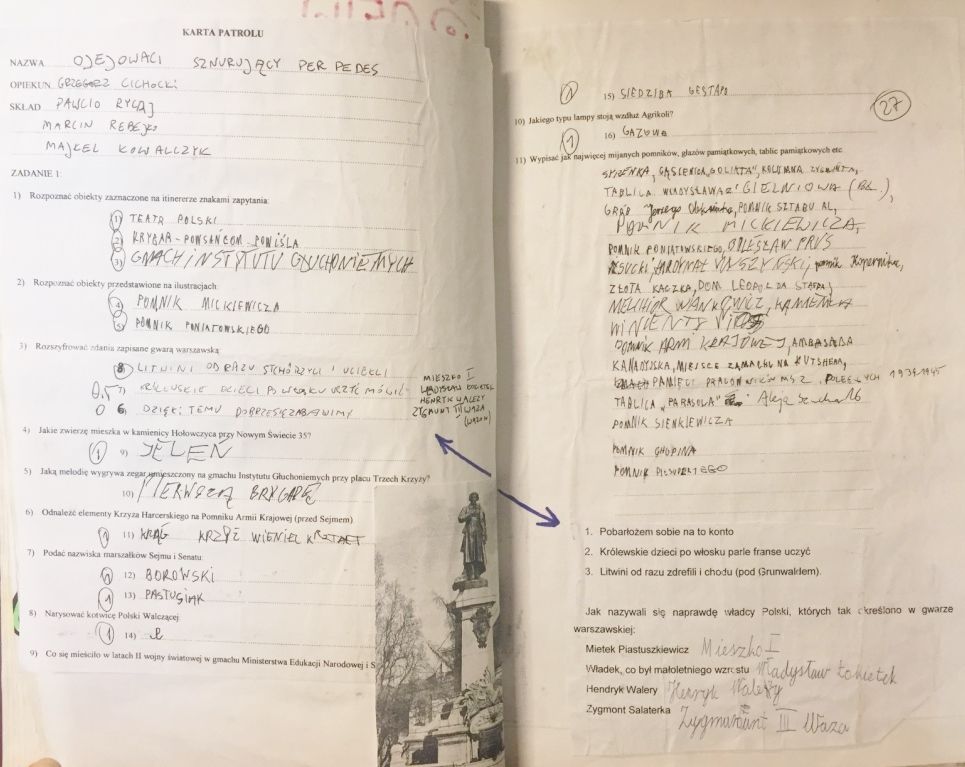 KARTA PATROLU
NAZWA OJEJOWACI SZNURUJĄCY PER PEDES
OPIEKUN GRZEGORZ CICHOCKI
SKŁAD PAWCIO RYCAJ
MARCIN REBEJKO
MAJKEL KOWALCZYK
ZADANIE 1:
1) Rozpoznać obiekty zaznaczone na itinererze znakami zapytania:
1) TEATR POLSKI
2) KRYBAR - POWSAŃCOM POWIŚLA
3) GMACH INSTYTUTU GŁUCHONIEMYCH
2) Rozpoznać obiekty przedstawione na ilustracjach:
4) POMNIK MICKIEWICZA
5) POMNIK PONIATOWSKIEGO
3) Rozszyfrować zdania zapisane gwarą warszawską:
8) LITWINI OD RAZU STCHÓRZYLI I UCIEKLI
0,5 7) KRÓLEWSKIE DZIECI PO WŁOSKU UCZYĆ MÓWIĆ
0 6) DZIĘKI TEMU DOBRZE SIĘ ZABAWIMY
MIESZKO I
WŁADYSŁAW ŁOKIETEK
HENRYK WALEZY
ZYGMUNT III WAZA
(WAZON)
4) Jakie zwierzę mieszka w kamienicy Hołowczyca przy Nowym Świecie 35?
1 9) JELEŃ
5) Jaką melodię wygrywa zegar umieszczony na gmachu Instytutu Głuchoniemych przy placu Trzech Krzyży?
10) PIERWSZĄ BRYGADĘ
6) Odnaleźć elementy Krzyża Harcerskiego na Pomniku Armii Krajowej (przed Sejmem)
1 11) KRĄG KRZYŻ WIENIEC KSZTAŁT
7) Podać nazwiska marszałków Sejmu i Senatu:
1 12) BOROWSKI
1 13) PASTUSIAK
8) Narysować kotwicę Polski Walczącej:
1 14)
9) Co się mieściło w latach II wojny światowej w gmachu Ministerstwa Edukacji Narodowej i S
1 15) SIEDZIBA GESTAPO
27
10) Jakiego typu lampy stoją wzdłuż Agrikoli?
1 16) GAZOWE
11) Wypisać jak najwięcej mijanych pomników, głazów pamiątkowych, tablic pamiątkowych etc.
SYRENKA, GĄSIENICA „GOLIATA", KOLUMNA ZYGMUNTA,
TABLICA WŁADYSŁAWA Z GIELNIOWA
GRÓB Jerzego POMNIK SZTABU AL,
POMNIK MICKIEWICZA,
POMNIK PONIATOWSKIEGO, BOLESŁAW PRUS
KARDYNAŁ WYSZYŃSKI, pomnik Kopernika,
ZŁOTA KACZKA, DOM LEOPOLDA STAFFA,
MELCHIOR WAŃKOWICZ, KAMIENICA
POMNIK ARMI KRAJOWEJ, AMBASADA
KANADYJSKA, MIEJSCE ZAMACHU NA KUTSHERA,
PAMIĘCI PRACOWNIKÓW MSZ POLEGŁYCH 1939-1945
TABLICA „PARASOLA" Aleja Szucha 16
POMNIK SIENKIEWICZA
POMNIK CHOPINA
POMNIK PIŁSUDSKIEGO
1. Pobarłożem sobie na to konto
2. Królewskie dzieci po włosku parle franse uczyć
3. Litwini od razu zdrefili i chodu (pod Grunwaldem).
Jak nazywali się naprawdę władcy Polski, których tak określono w gwarze
warszawskiej:
Mietek Piastuszkiewicz Mieszko I
Władek, co był małoletniego wzrostu Władysław Łokietek
Hendryk Walery Henryk Walezy
Zygmont Salaterka Zygmunt III Waza